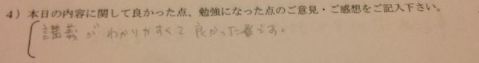 4）本日の内容に関して良かった点、勉強になった点のご意見・ご感想をご記入下さい。
講義がわかりやすくて良かったです。